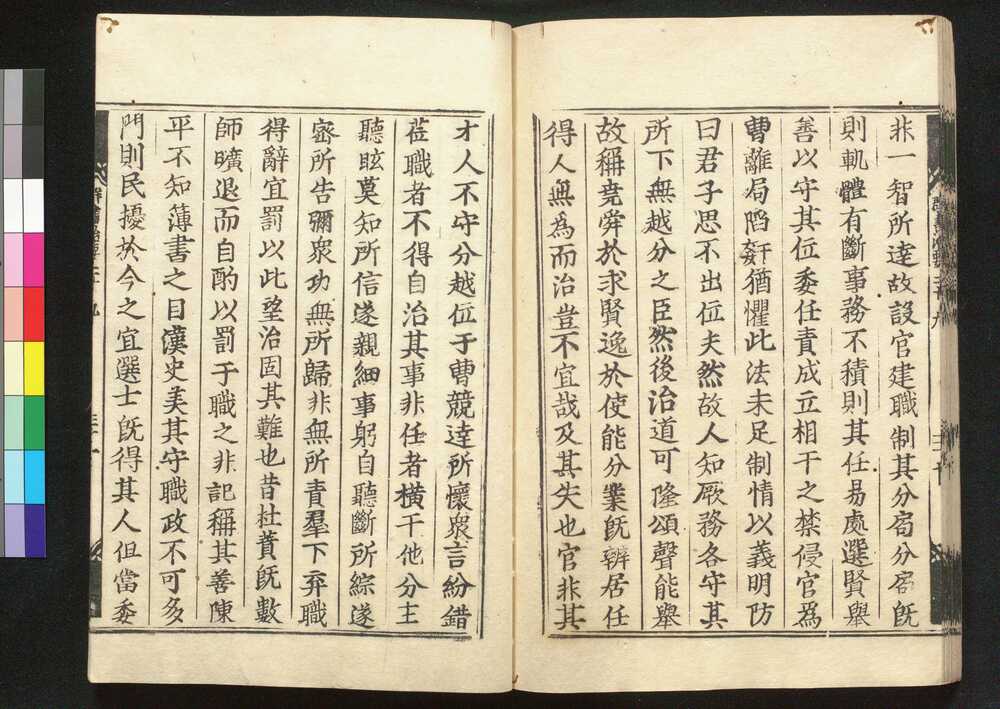 非一智所達故設官建職制其分局分局既
則軌體有斷事務不積則其任易處選賢舉
善以守其位委任責成立相干之禁侵官爲
曹離局陷姧猶懼此法未足制情以義明防
曰君子思不出位夫然故人知厥務各守其
所下無越分之臣然後治道可隆頌聲能舉
故稱堯舜於求賢逸於使能分業既辨居任
得人無爲而治豈不宜哉及其失也官非其
才人不守分越位于曹競達所懷衆言紛錯
莅職者不得自治其事非任者橫干他分主
聽眩莫知所信遂親細事躬自聽斷所綜遂
密所告彌衆功無所歸非無所責羣下弃職
得辭宜罰以此望治固其難也昔杜蕢既數
師曠退而自酌以罰于職之非記稱其善陳
平不知簿書之目漢史美其守職政不可多
門則民擾於今之宜選士既得其人但當委